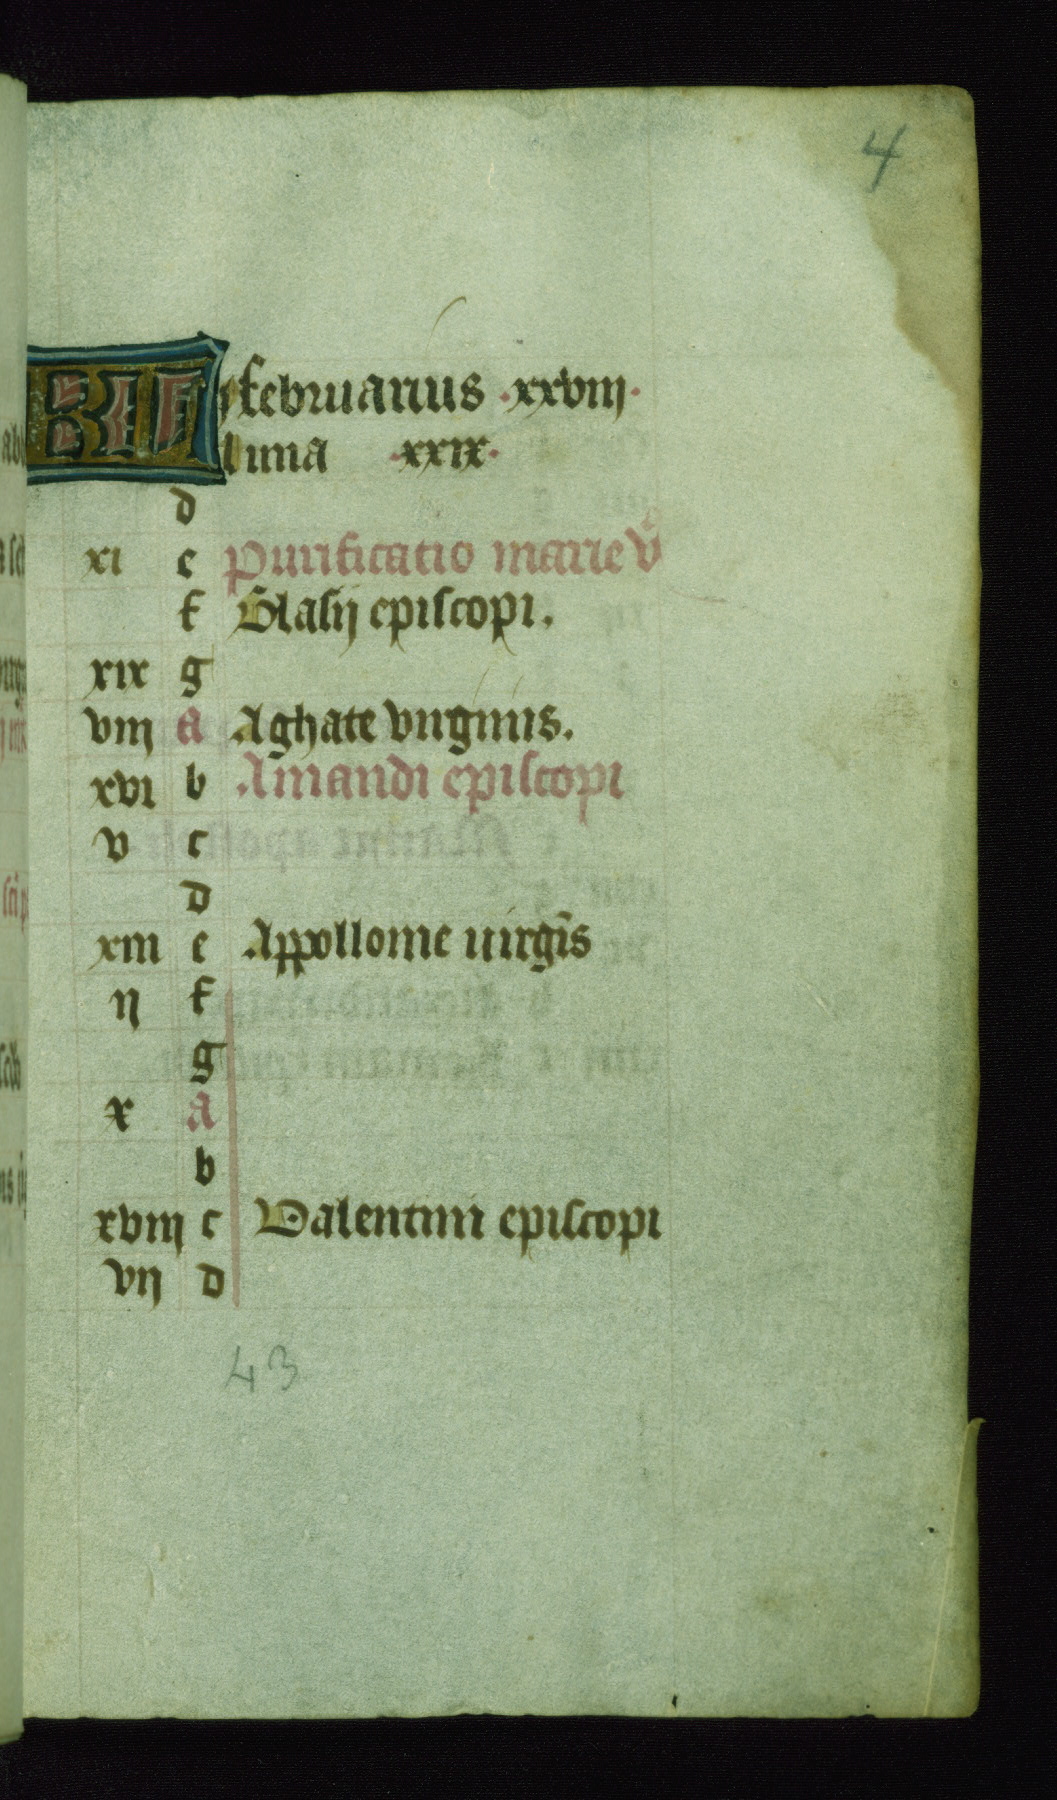 4
KL februarius ·xxviij·
luna ·xxix·
d
xi e Purificatio marie v̾
f Blasij episcopi.
xix g
viij a Aghate virginis.
xvi b Amandi episcopi
v c
d
xiii e Appollonie uirgīs
ij f
g
x a
b
xviij c Valentini episcopi
vij d
43